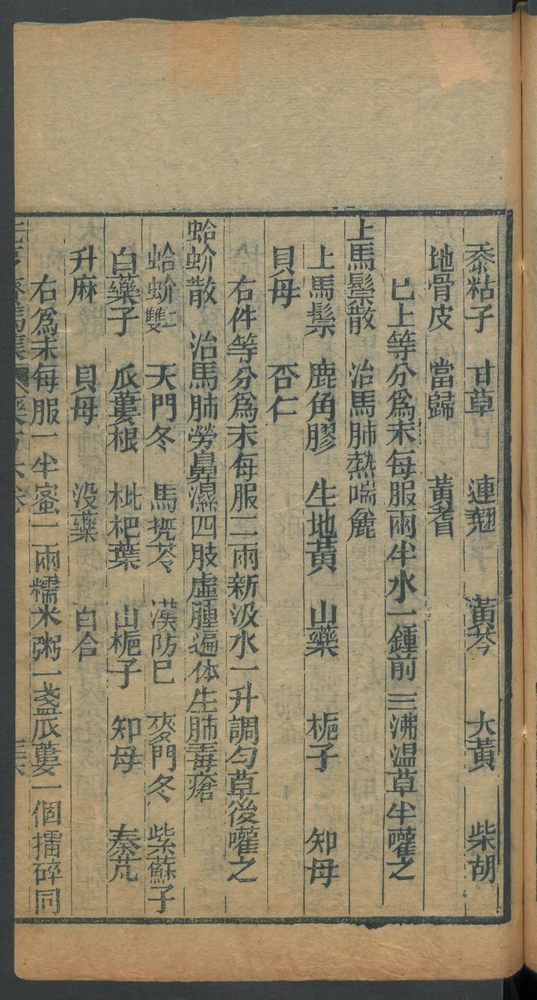 黍粘子 甘草 連翹 黃芩 大黃 柴胡
地骨皮 當歸 黃耆
已上等分爲末每服兩半水一鍾前三沸温草半嚾之
上馬鬃散 治馬肺熱喘麄
上馬鬃 鹿角膠 生地黃 山藥 梔子 知母
貝母 杏仁
右件等分爲末每服二兩新汲水一升調勻草後嚾之
蛤蚧散 治馬肺勞鼻濕四肢虛腫遍体生肺毒瘡
蛤蚧一雙 天門冬 馬兠苓 漢防巳 麥門冬 紫蘇子
白藥子 瓜蔞根 枇杷葉 山梔子 知母 秦艽
升麻 貝母 没藥 白合
右爲末每服一半蜜二兩糯米粥一盞瓜蔞一個擂碎同